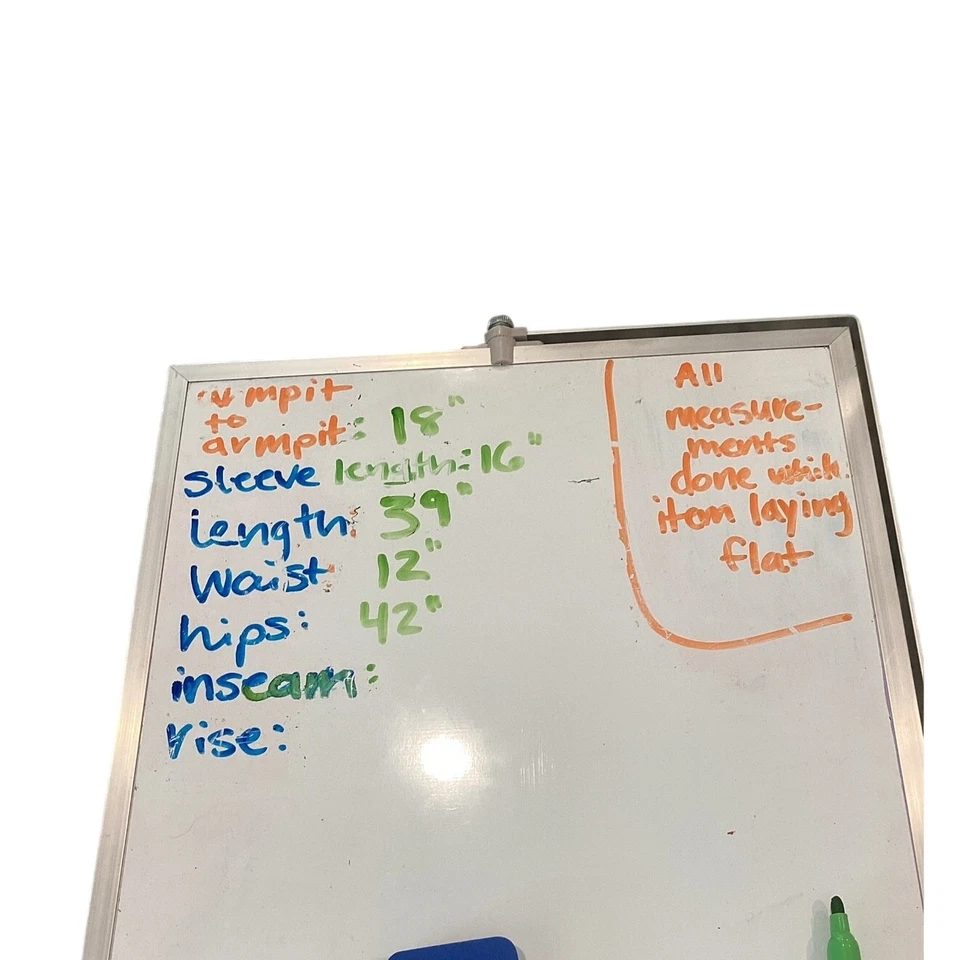 armpit
to
armpit: 18"
sleeve length: 16"
length: 39"
Waist 12"
hips: 42"
inseam:
rise:
All
measure-
ments
done which
item laying
flat